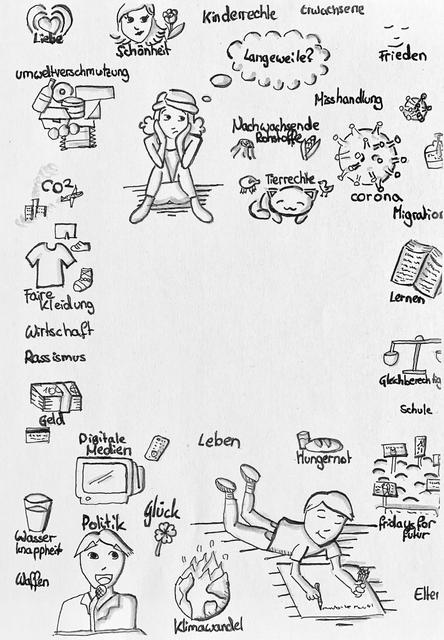 Liebe
Schönheit
Kinderrechte
Erwachsene
Langeweile?
Frieden
Umweltverschmutzung
Misshandlung
Nachwachsende
Rohstoffe
Tierrechte
CO2
corona
Migration
Faire
Kleidung
Lernen
Wirtschaft
Rassismus
Gleichberechtig
Geld
Schule
100
Digitale
Medien
Leben
Hungernot
Glück
Politik
Wasser
knappheit
Fridays for
futur
Waffen
Klimawandel
Elter